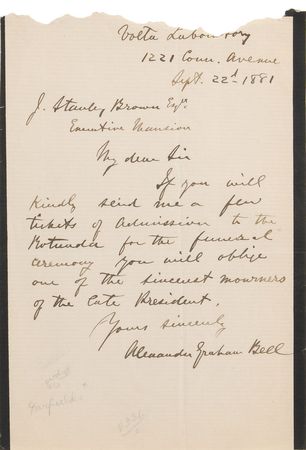 Volta Laboratory
1221 Conn. Avenue
Sept. 22d 1881
J. Stanley Brown Esqr.
Executive Mansion
My dear Sir
If you will
kindly send me a few
tickets of admission to the
Rotunda for the funeral
ceremony you will oblige
one of the sincerest mourners
of the late President.
Yours sincerely
Alexander Graham Bell
Garfield